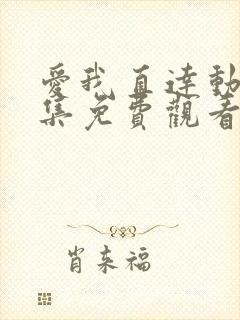 愛我直達動
集免費觀看
肖来福